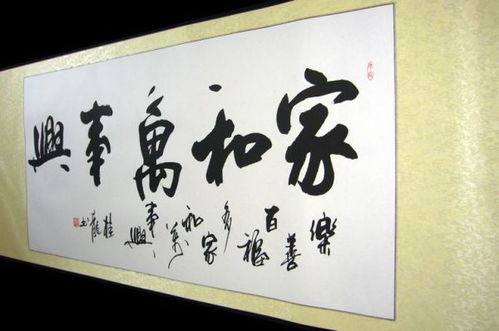 家和萬事興
樂善
百福
多家
和萬
事興
桂龍
书